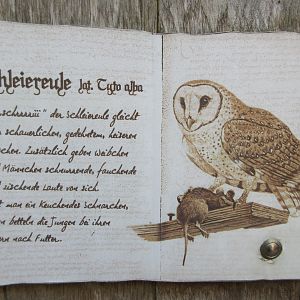 hleiereule lat. Tyto alba
schrrrriii" der Schleiereule gleicht
schauerlichen, gedehntem, heiseren
chen. Zusätzlich geben Weibchen
Männchen schnurrende, fauchende
zischende Laute von sich.
t man ein Keuchendes schnarchen,
n betteln die Jungen bei ihren
ern nach Futter.